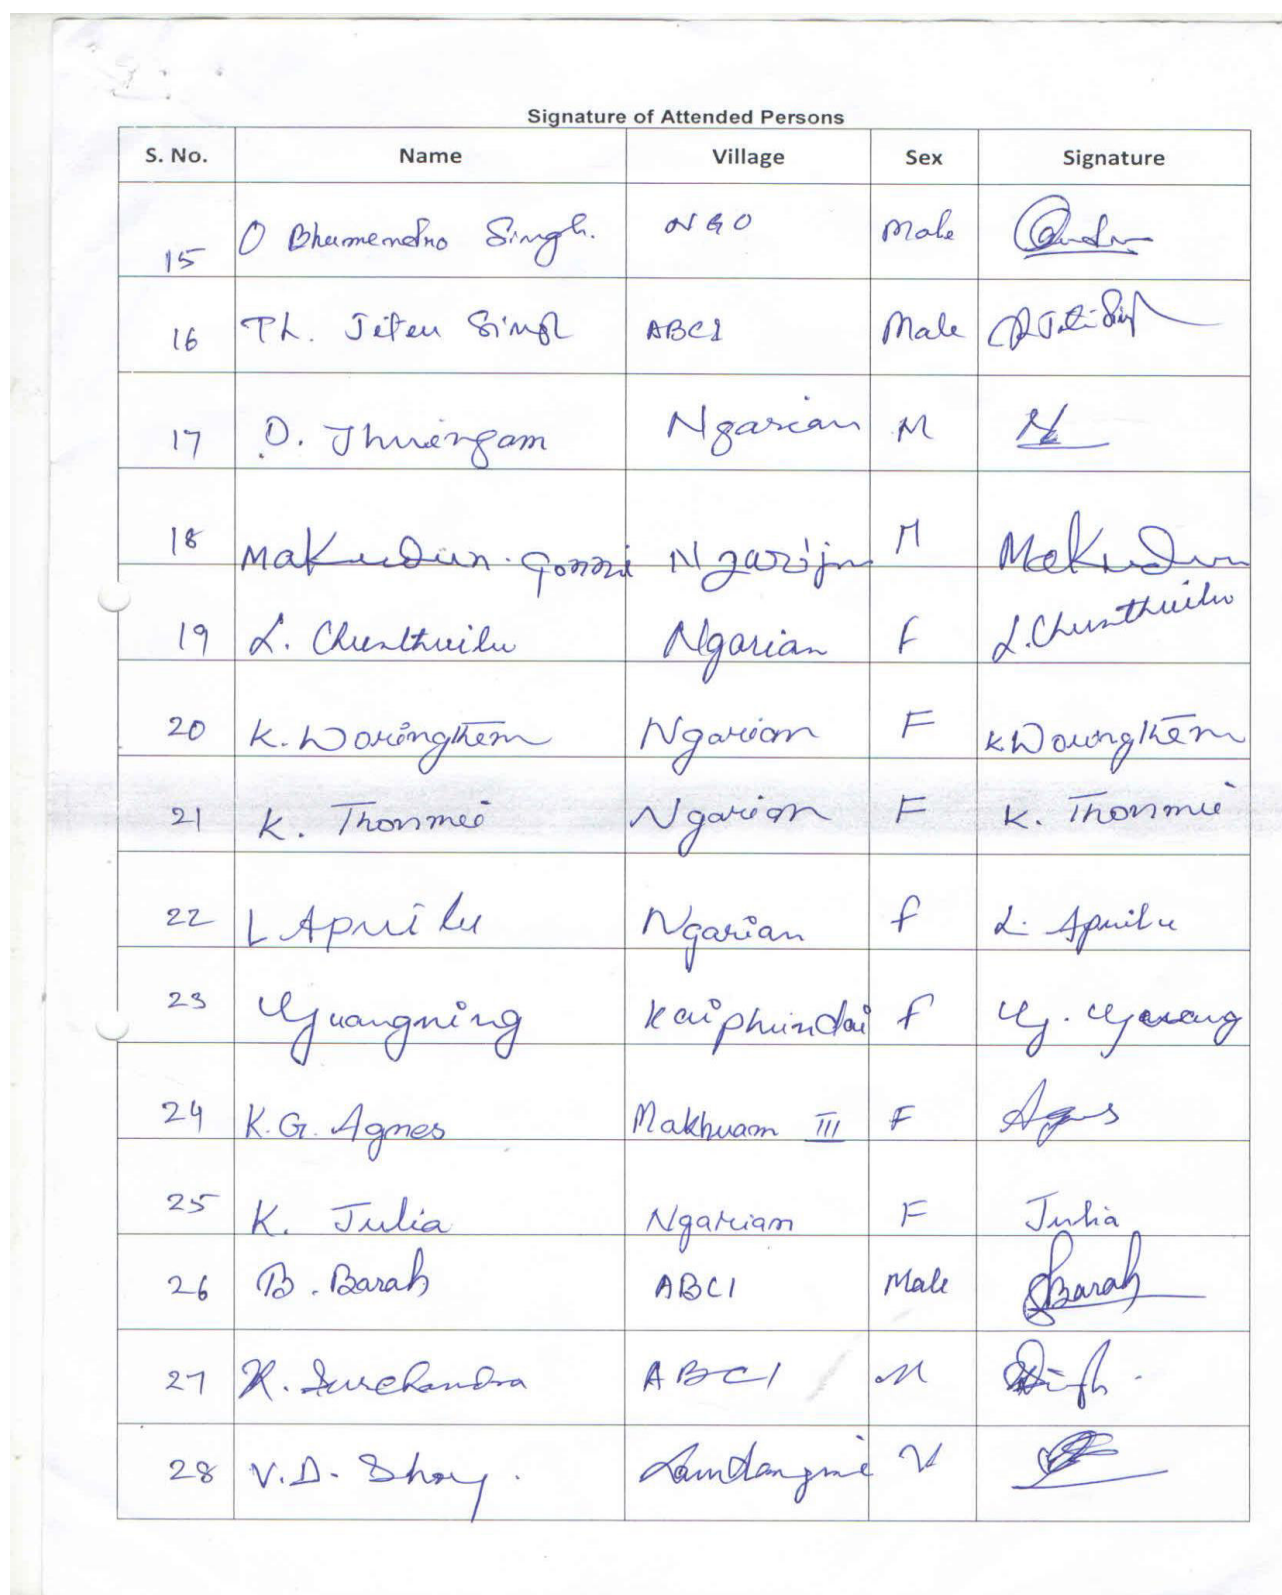 Signature of Attended Persons
S. No. Name Village Sex Signature
15 O Bhumendro Singh. NGO Male
16 Th. Jiten Singh ABCI Male
17 D. Thuiengam Ngarian M
18 Makudun. Gonmei Ngarijn M Makudun
19 L. Chunthuilu Ngarian F L. Chunthuilu
20 K. Woringthem Ngarian F K Woringthem
21 K. Thonmei Ngarian F K. Thonmei
22 L Apuilu Ngarian F L. Apuilu
23 Guangning Kaiphundai F
24 K.G. Agnes Makhuam III F Agnes
25 K. Julia Ngarian F Julia
26 B. Barah ABCI Male Barah
27 K. Surchandra ABCI M Singh.
28 V.D. Shoy.